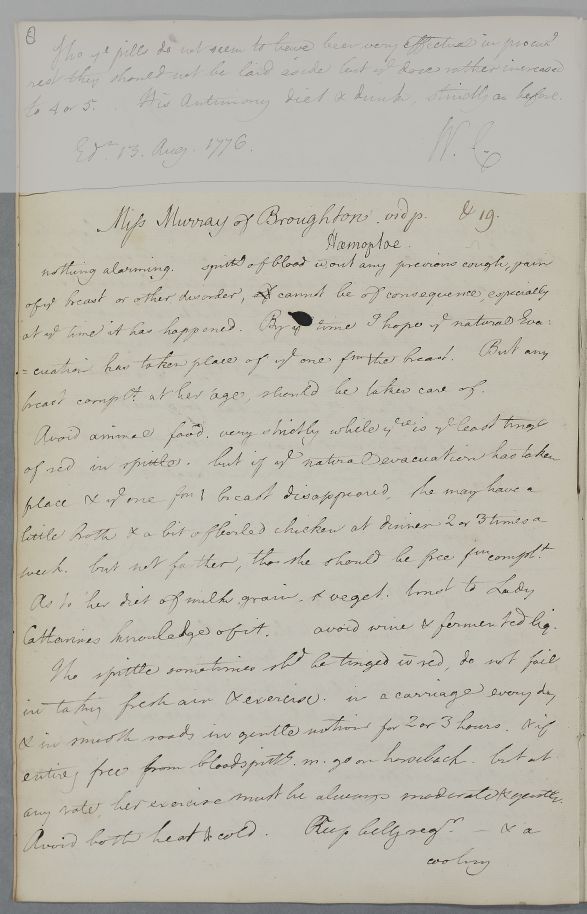 8
Tho' ye pills do not seem to have been very effectual in procurg
rest they should not be laid aside but ye dose rather increased
to 4 or 5. His Antimony diet & drink, strictly as before.
Edr. 13. Aug. 1776. W. C
Miss Murray of Broughton vid p. & 19.
Hæmoptoe.
nothing alarming. spittg of blood wout any previous cough, pain
of ye breast or other disorder, cannot be of consequence, especially
at ye time it has happened. By ys time I hope ye natural Eva:
=cuation has taken place of ye one fm the breast. But any
breast complt. at her age, should be taken care of.
Avoid animal food, very strictly while yre is ye least tinge
of red in spittle. but if ye natural evacuation has taken
place & ye one fm breast disappeared, she may have a
little broth & a bit of boiled chicken at dinner 2 or 3 times a
week. but not farther, tho' she should be free fm complt.
As to her diet of milk, grain, & veget. trust to Lady
Catharines knowledge of it. avoid wine & fermented liq.
Tho spittle sometimes shd be tinged w red, do not fail
in takg fresh air & exercise. in a carriage every day
& in smooth roads in gentle motion for 2 or 3 hours. & if
entirey free from bloodspittg. m. go on horseback. but at
any rate, her exercise must be always moderate & gentle.
Avoid both heat & cold. Keep belly regr. — & a
cooling